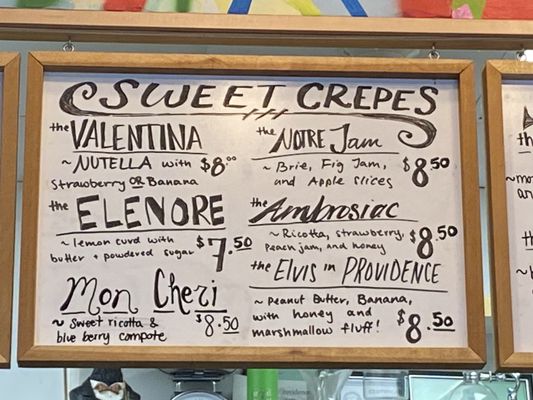 SWEET CREPES
the VALENTINA
~ NUTELLA with $8.00
Strawberry OR Banana
the ELENORE
~ lemon curd with
butter + powdered sugar $7.50
Mon Cheri
~ Sweet ricotta &
blue berry compote $8.50
the NOTRE Jam
~ Brie, Fig Jam,
and Apple slices $8.50
the Ambrosiac
~ Ricotta, strawberry,
Peach jam, and honey $8.50
the ELVIS in PROVIDENCE
~ Peanut Butter, Banana,
with honey and
marshmallow fluff! $8.50